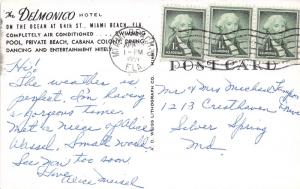 The DELMONICO HOTEL
ON THE OCEAN AT 64TH ST., MIAMI BEACH, FLA.
COMPLETELY AIR CONDITIONED ... SWIMMING
POOL, PRIVATE BEACH, CABANA COLONY, DINING,
DANCING AND ENTERTAINMENT NITELY
POST CARD
Hi!
The weather is
perfect, I'm having
a gorgeous time.
Met a niece of Alice
Wessel, Small world.
See you too soon
Love,
Alice Meisel
Mr & Mrs Michael
1213 Cresthaven Drive
Silver Spring
Md.
LITHOGRAPH CO.